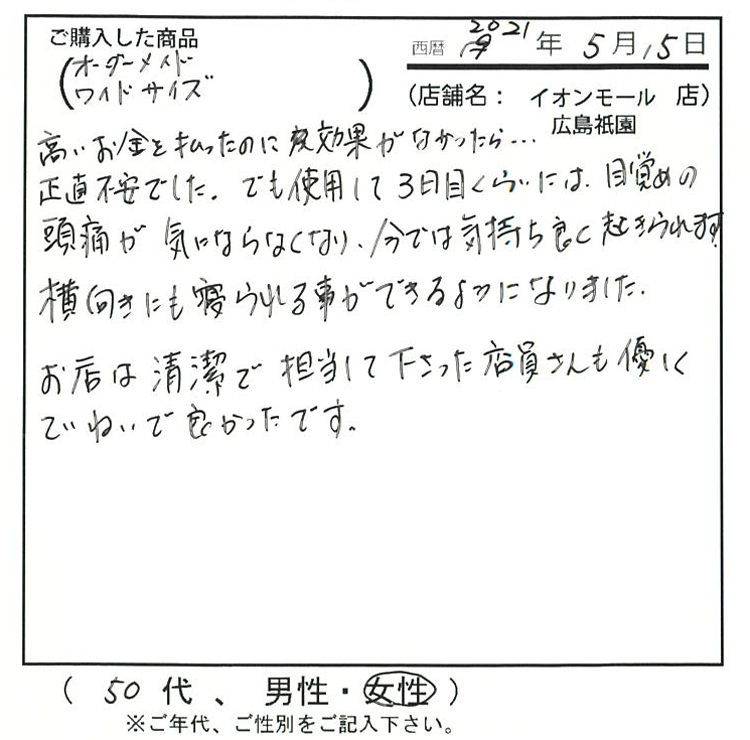 ご購入した商品
(オーダーメイド
ワイドサイズ )
西暦 2021年 5月15日
(店舗名: イオンモール 店)
広島祇園
高いお金を払ったのに効果がなかったら…
正直不安でした。でも使用して3日目くらいには、目覚めの
頭痛が気にならなくなり、今では気持ち良く起きられます
横向きにも寝られる事ができるようになりました。
お店は清潔で担当して下さった店員さんも優しく
ていねいで良かったです。
( 50 代 、 男性・女性 )
※ご年代、ご性別をご記入下さい。